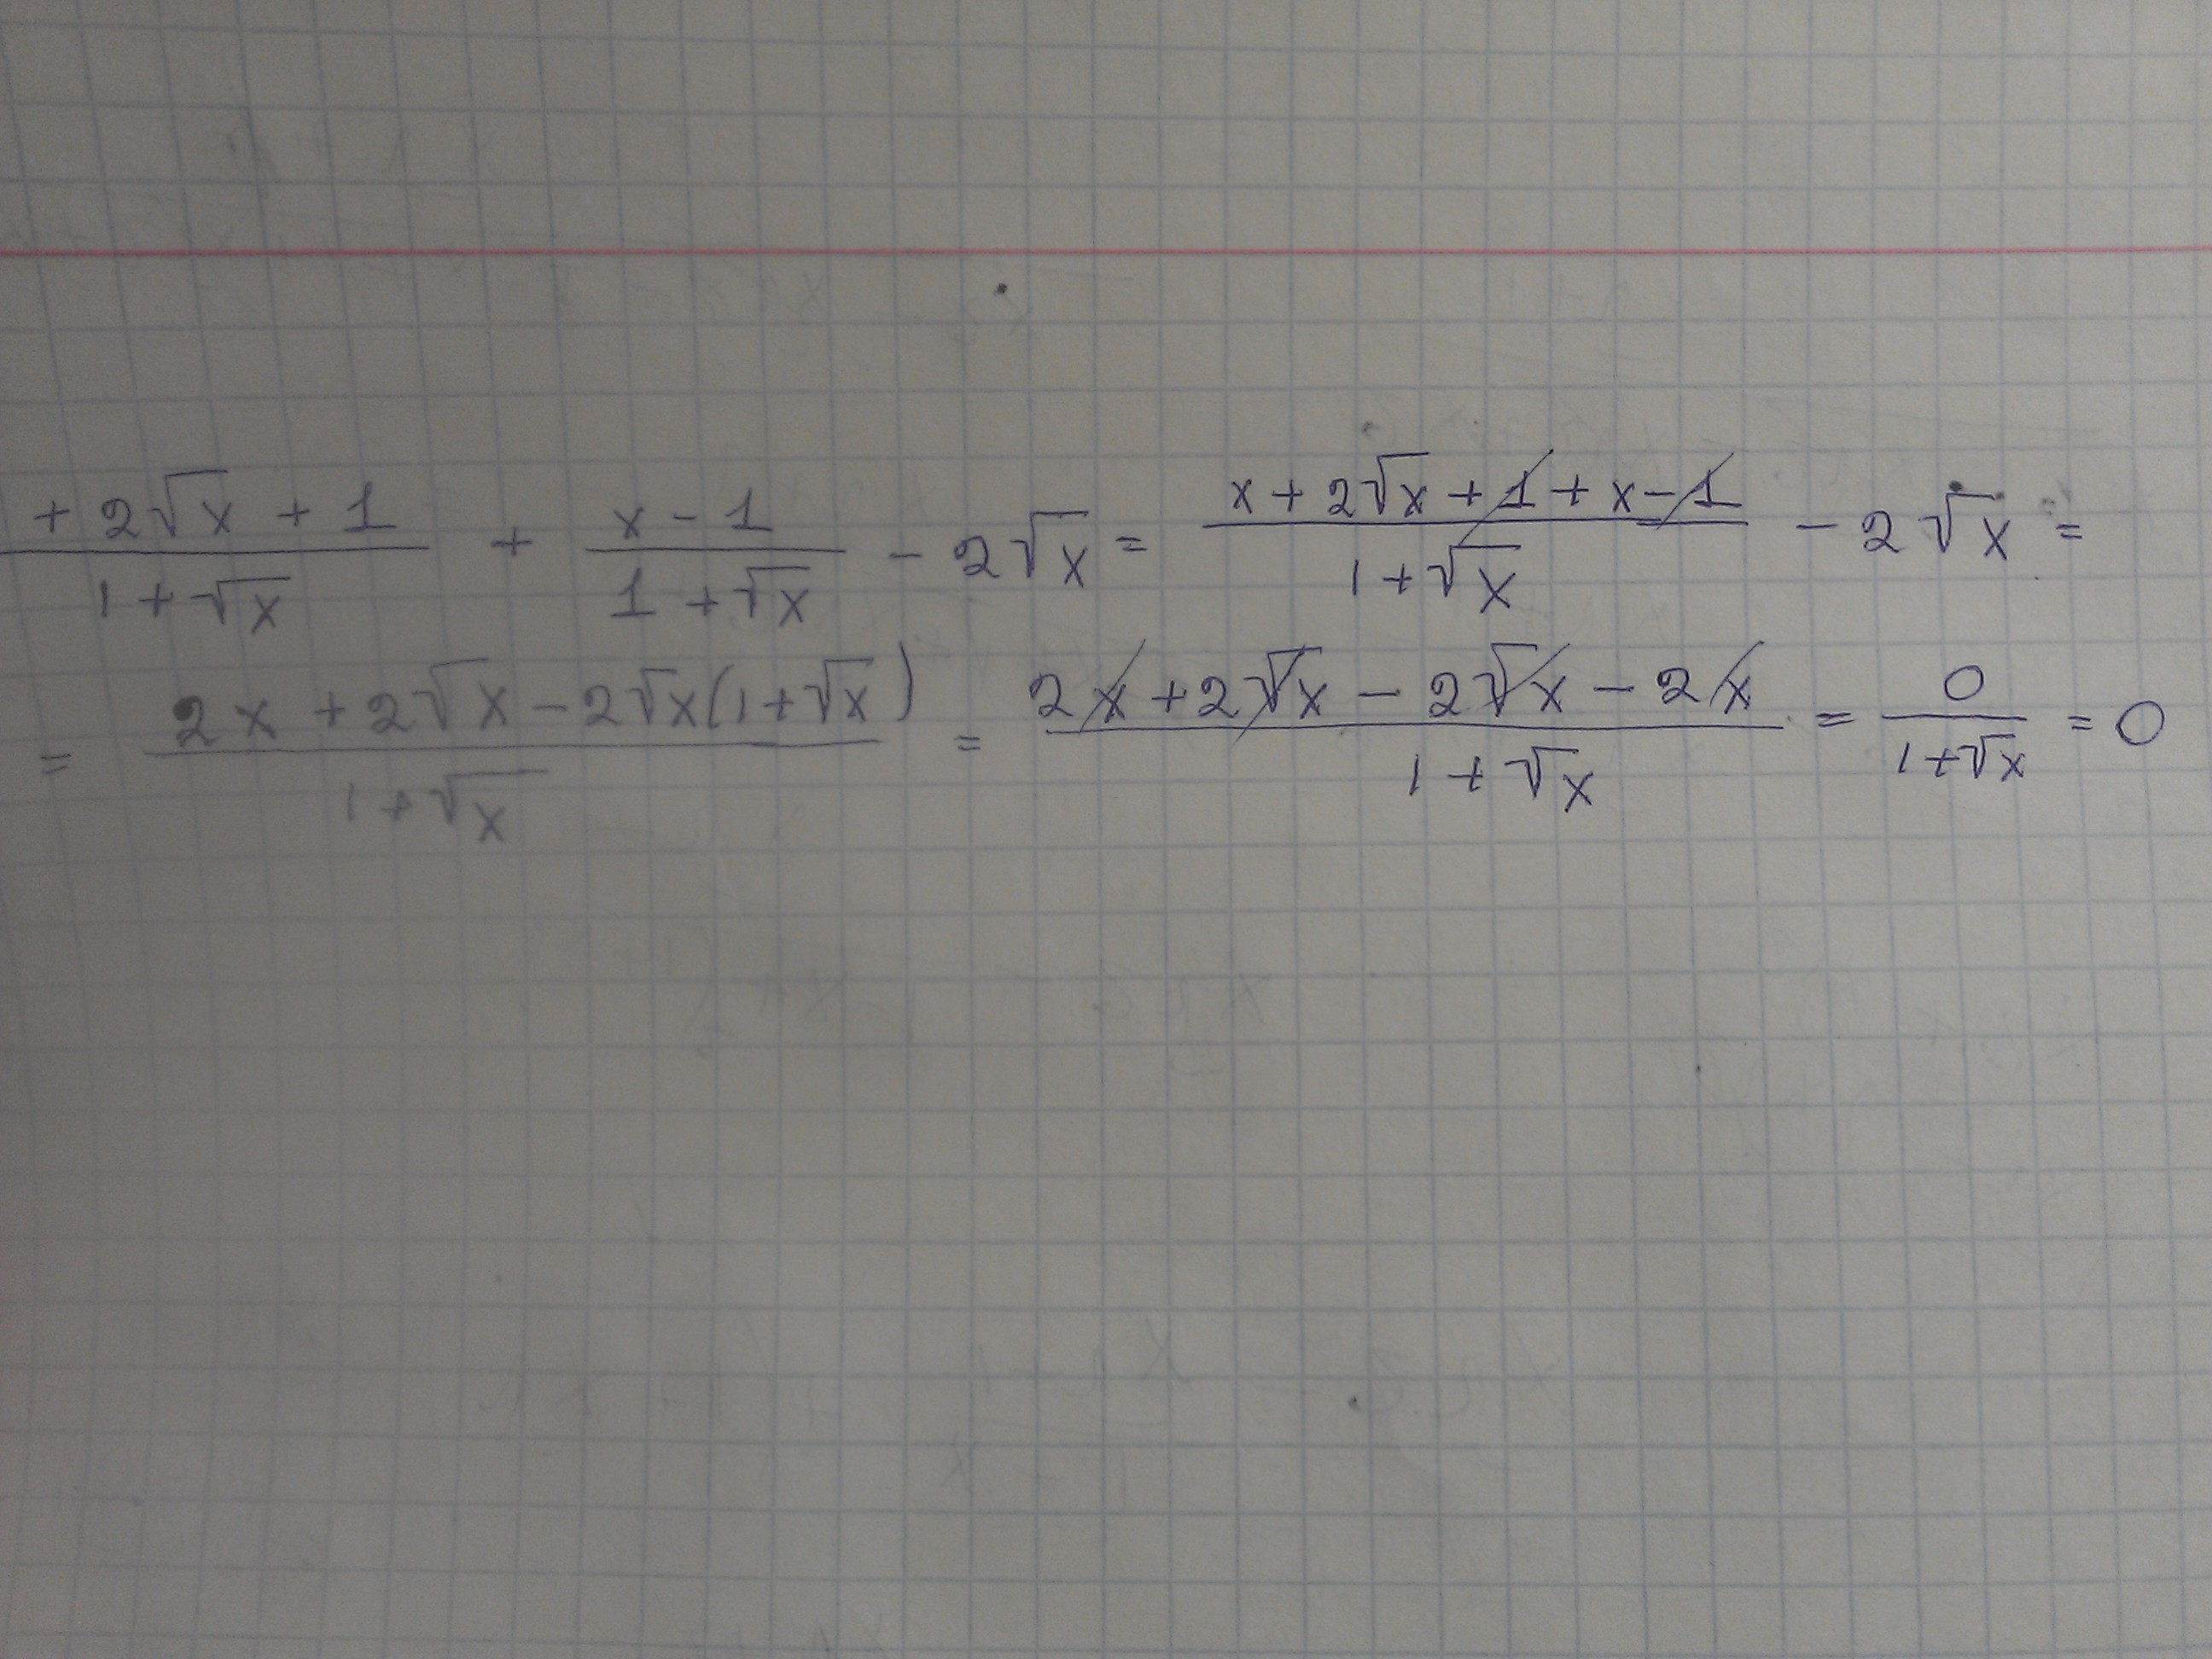 + 2√x + 1 / 1 + √x + x - 1 / 1 + √x - 2√x = x + 2√x + 1 + x - 1 / 1 + √x - 2√x =
= 2x + 2√x - 2√x(1+√x) / 1 + √x = 2x + 2√x - 2√x - 2x / 1 + √x = 0 / 1+√x = 0